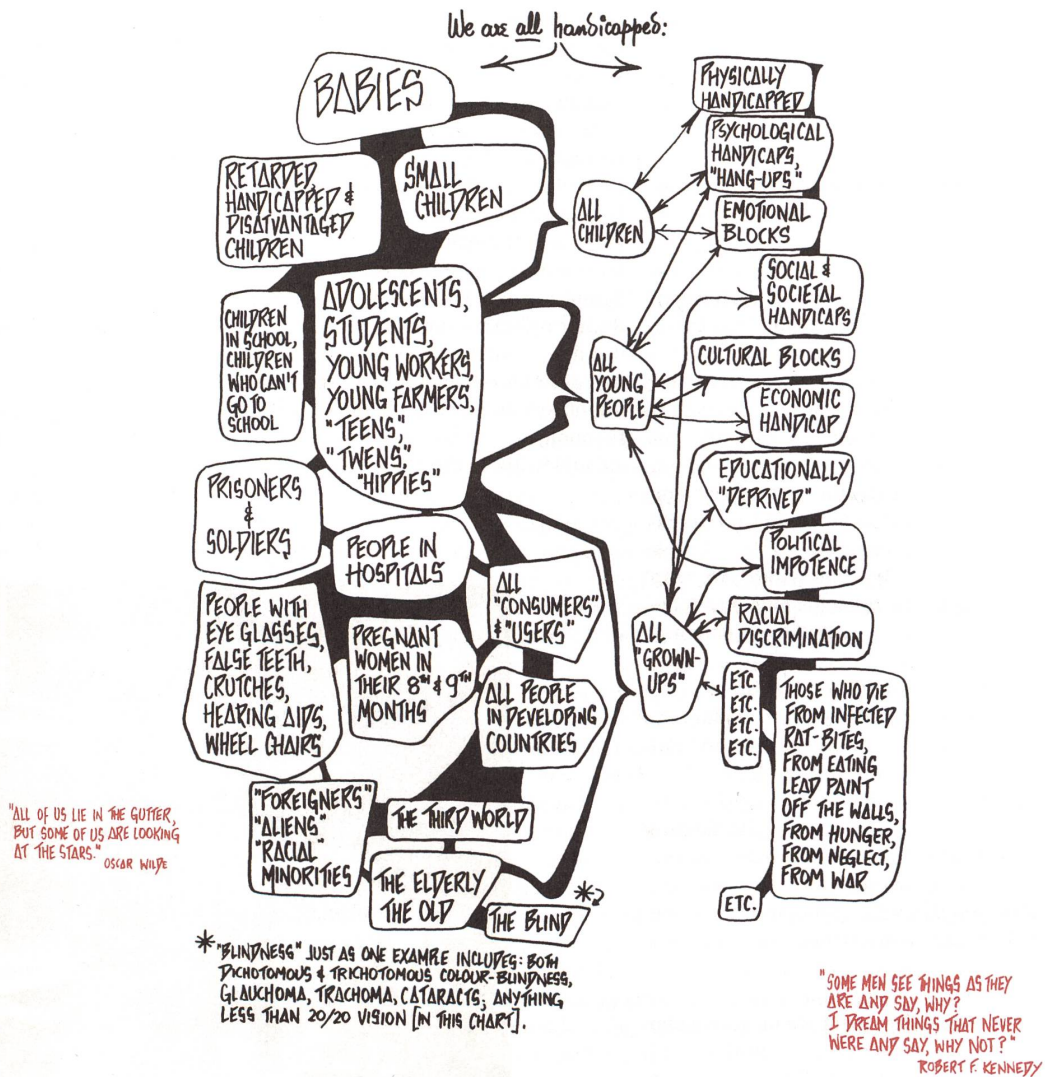 We are all handicapped:
BABIES
RETARDED,
HANDICAPPED &
DISATVANTAGED
CHILDREN
SMALL
CHILDREN
CHILDREN
IN SCHOOL,
CHILDREN
WHO CAN'T
GO TO
SCHOOL
ADOLESCENTS,
STUDENTS,
YOUNG WORKERS,
YOUNG FARMERS,
"TEENS",
"TWENS,"
"HIPPIES"
PRISONERS
&
SOLDIERS
PEOPLE IN
HOSPITALS
PEOPLE WITH
EYE GLASSES,
FALSE TEETH,
CRUTCHES,
HEARING AIDS,
WHEEL CHAIRS
PREGNANT
WOMEN IN
THEIR 8TH & 9TH
MONTHS
ALL
"CONSUMERS"
& "USERS"
ALL PEOPLE
IN DEVELOPING
COUNTRIES
"FOREIGNERS"
"ALIENS"
"RACIAL"
MINORITIES
THE THIRD WORLD
THE ELDERLY
THE OLD
THE BLIND
*
ALL
CHILDREN
ALL
YOUNG
PEOPLE
ALL
"GROWN-
UPS"
PHYSICALLY
HANDICAPPED
PSYCHOLOGICAL
HANDICAPS,
"HANG-UPS"
EMOTIONAL
BLOCKS
SOCIAL &
SOCIETAL
HANDICAPS
CULTURAL BLOCKS
ECONOMIC
HANDICAP
EDUCATIONALLY
"DEPRIVED"
POLITICAL
IMPOTENCE
RACIAL
DISCRIMINATION
ETC.
ETC.
ETC.
ETC.
THOSE WHO DIE
FROM INFECTED
RAT-BITES,
FROM EATING
LEAD PAINT
OFF THE WALLS,
FROM HUNGER,
FROM NEGLECT,
FROM WAR
ETC.
"ALL OF US LIE IN THE GUTTER,
BUT SOME OF US ARE LOOKING
AT THE STARS."
OSCAR WILDE
* "BLINDNESS" JUST AS ONE EXAMPLE INCLUDES: BOTH
DICHOTOMOUS & TRICHOTOMOUS COLOUR-BLINDNESS,
GLAUCHOMA, TRACHOMA, CATARACTS; ANYTHING
LESS THAN 20/20 VISION [IN THIS CHART].
"SOME MEN SEE THINGS AS THEY
ARE AND SAY, WHY?
I DREAM THINGS THAT NEVER
WERE AND SAY, WHY NOT?"
ROBERT F. KENNEDY